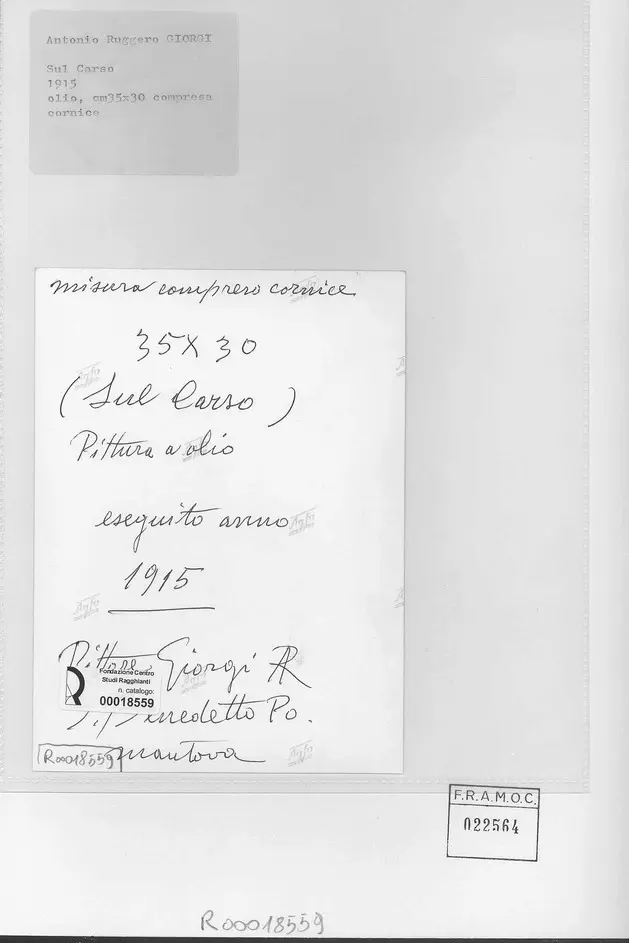 Antonio Ruggero GIORGI
Sul Carso
1915
olio, cm35x30 compresa
cornice
misura compreso cornice
35X30
(Sul Carso)
Pittura a olio
eseguito anno
1915
Pittore Giorgi AR
Fondazione Centro
Studi Ragghianti
n. catalogo:
00018559
Benedetto Po.
R00018559
mantova
F.R.A.M.O.C.
022564
R00018559